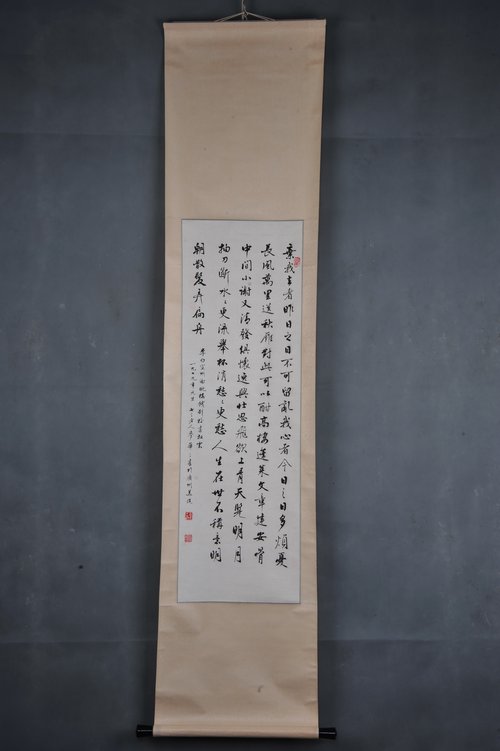 棄我去者昨日之日不可留亂我心者今日之日多煩憂
長風萬里送秋雁對此可以酣高樓蓬萊文章建安骨
中間小謝又清發俱懷逸興壯思飛欲上青天覽明月
抽刀斷水水更流舉杯消愁愁更愁人生在世不稱意明
朝散髮弄扁舟
李白宣州謝朓樓餞別校書叔雲
一九七九年